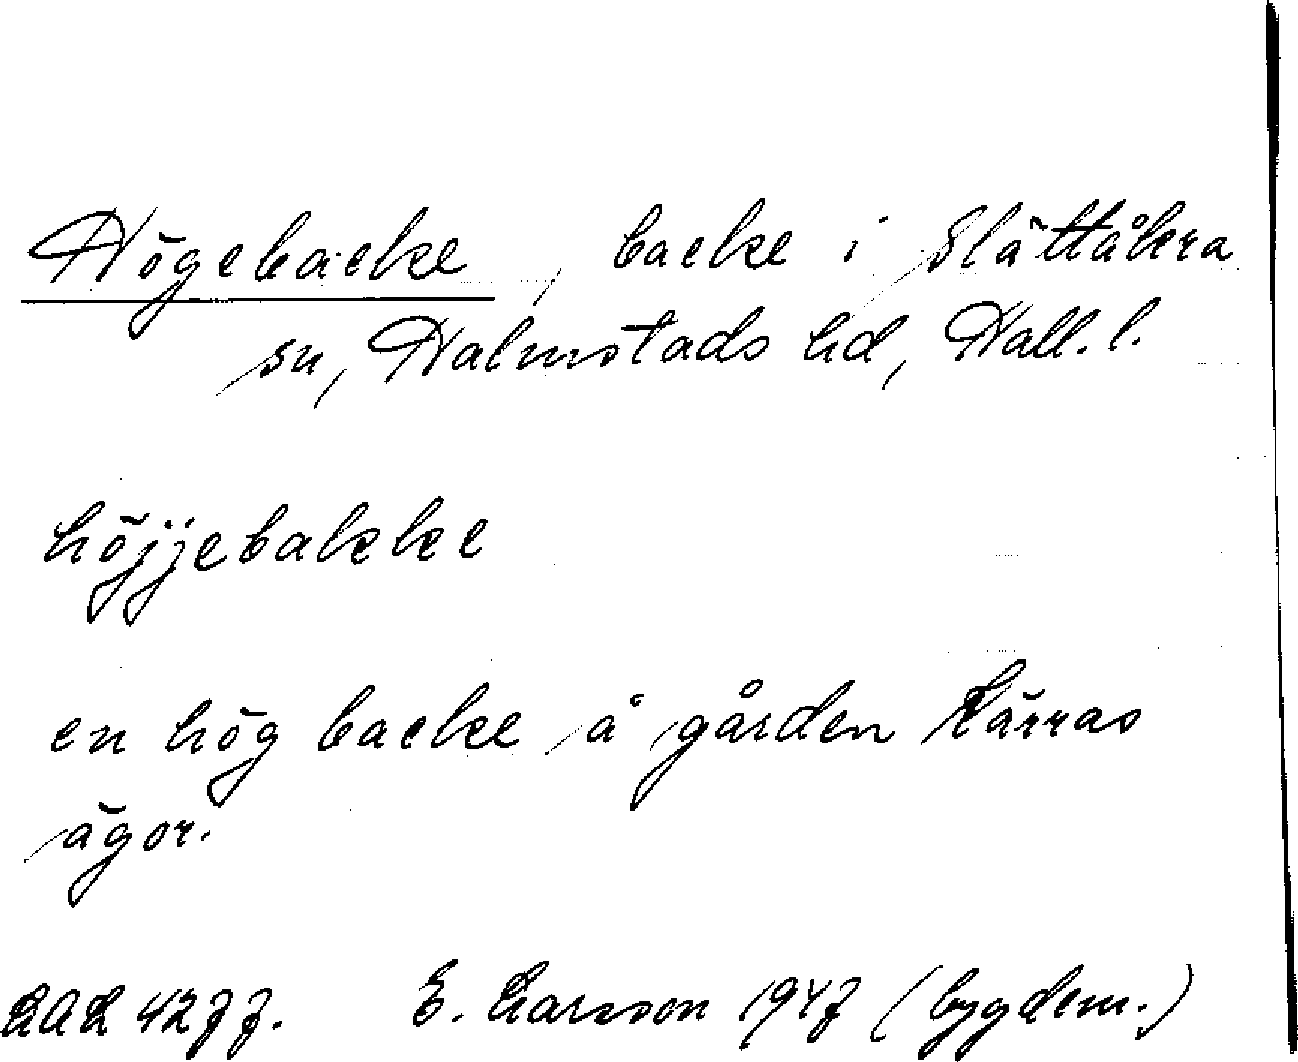 Högebacke, backe i Slättåkra
sn, Halmstads hd, Hall. l.
höjjebakke
en hög backe å gården Kärras
ägor.
LAL 4277. E. Larsson 1947 (bygdem.)